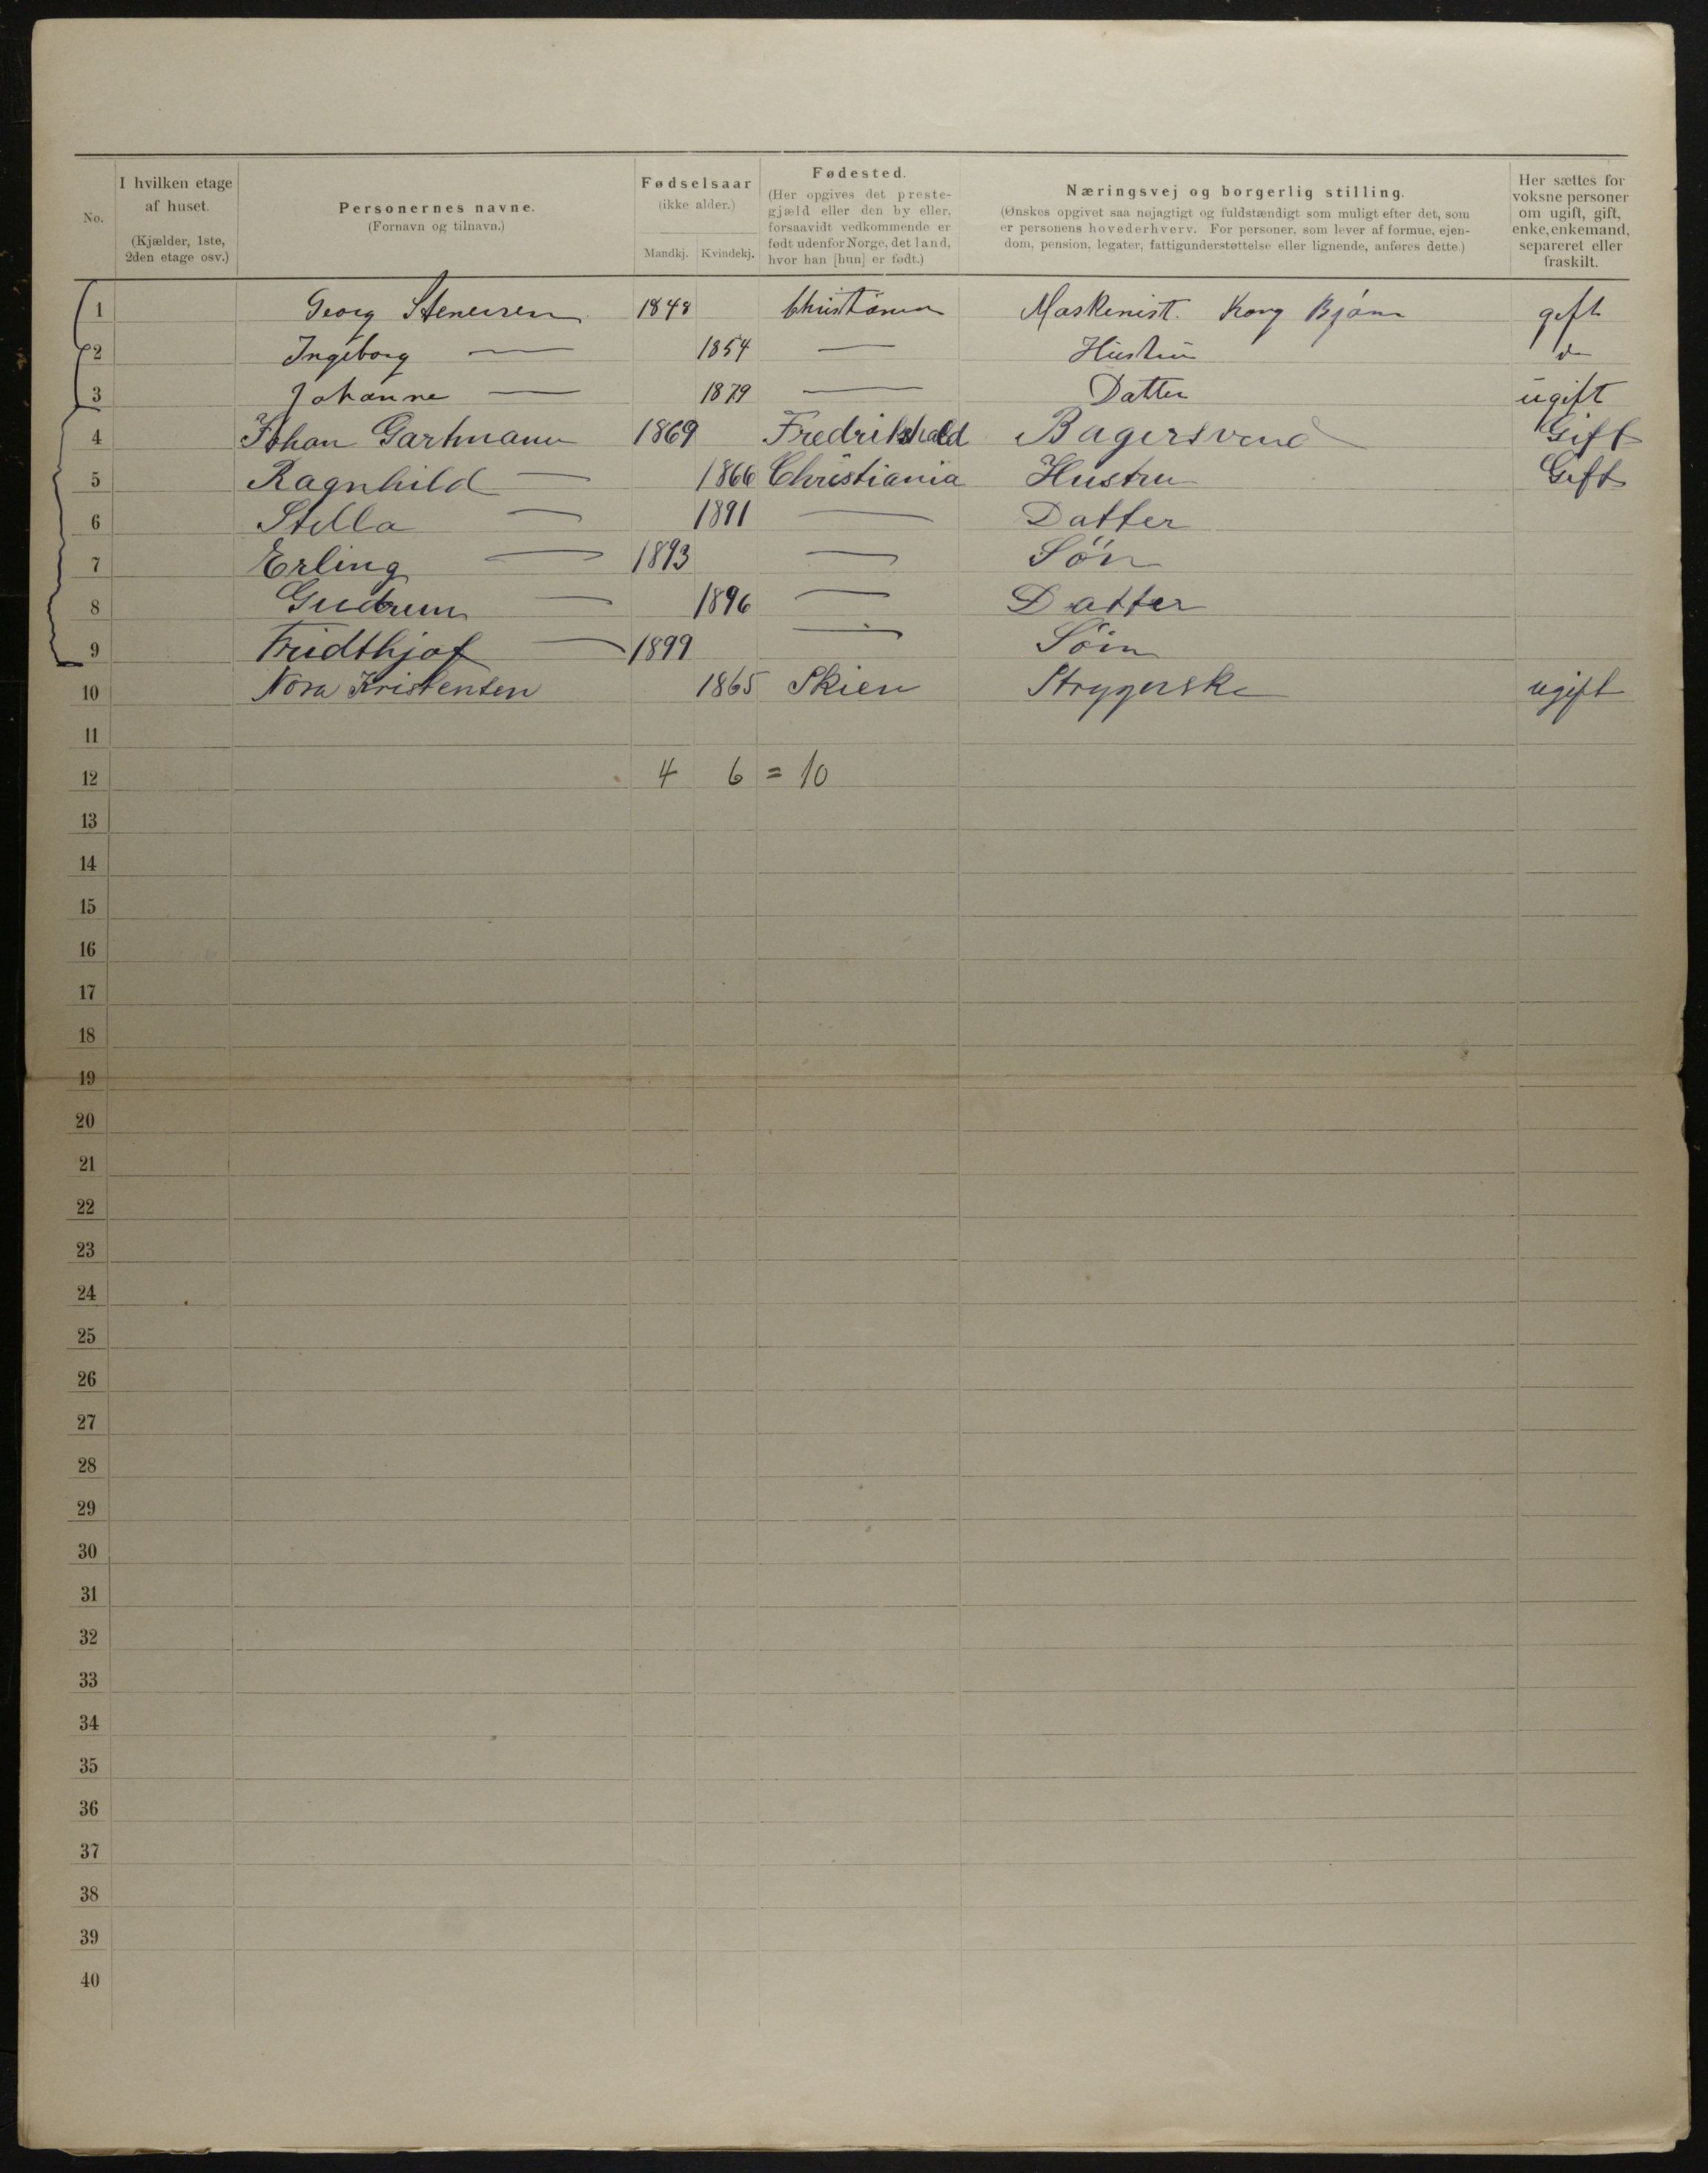 No.
I hvilken etage af huset. (Kjælder, 1ste, 2den etage osv.)
Personernes navne. (Fornavn og tilnavn.)
Fødselsaar (ikke alder.) Mandkj. Kvindekj.
Fødested. (Her opgives det prestegjæld eller den by eller, forsaavidt vedkommende er født udenfor Norge, det land, hvor han [hun] er født.)
Næringsvej og borgerlig stilling. (Ønskes opgivet saa nøjagtigt og fuldstændigt som muligt efter det, som er personens hovederhverv. For personer, som lever af formue, ejendom, pension, legater, fattigunderstøttelse eller lignende, anføres dette.)
Her sættes for voksne personer om ugift, gift, enke, enkemand, separeret eller fraskilt.
1 Georg Stenersen 1848 Christiania Maskenist. Kong Bjørn gift
2 Ingeborg — 1854 — Hustru do
3 Johanne — 1879 — Datter ugift
4 Johan Gartmann 1869 Fredrikshald Bagersvend Gift
5 Ragnhild — 1866 Christiania Hustru Gift
6 Stella — 1891 — Datter
7 Erling — 1893 — Søn
8 Gudrun — 1896 — Datter
9 Fridthjof — 1899 — Søn
10 Nora Kristensen 1865 Skien Strygerske ugift
11
12 4 6 = 10
13
14
15
16
17
18
19
20
21
22
23
24
25
26
27
28
29
30
31
32
33
34
35
36
37
38
39
40